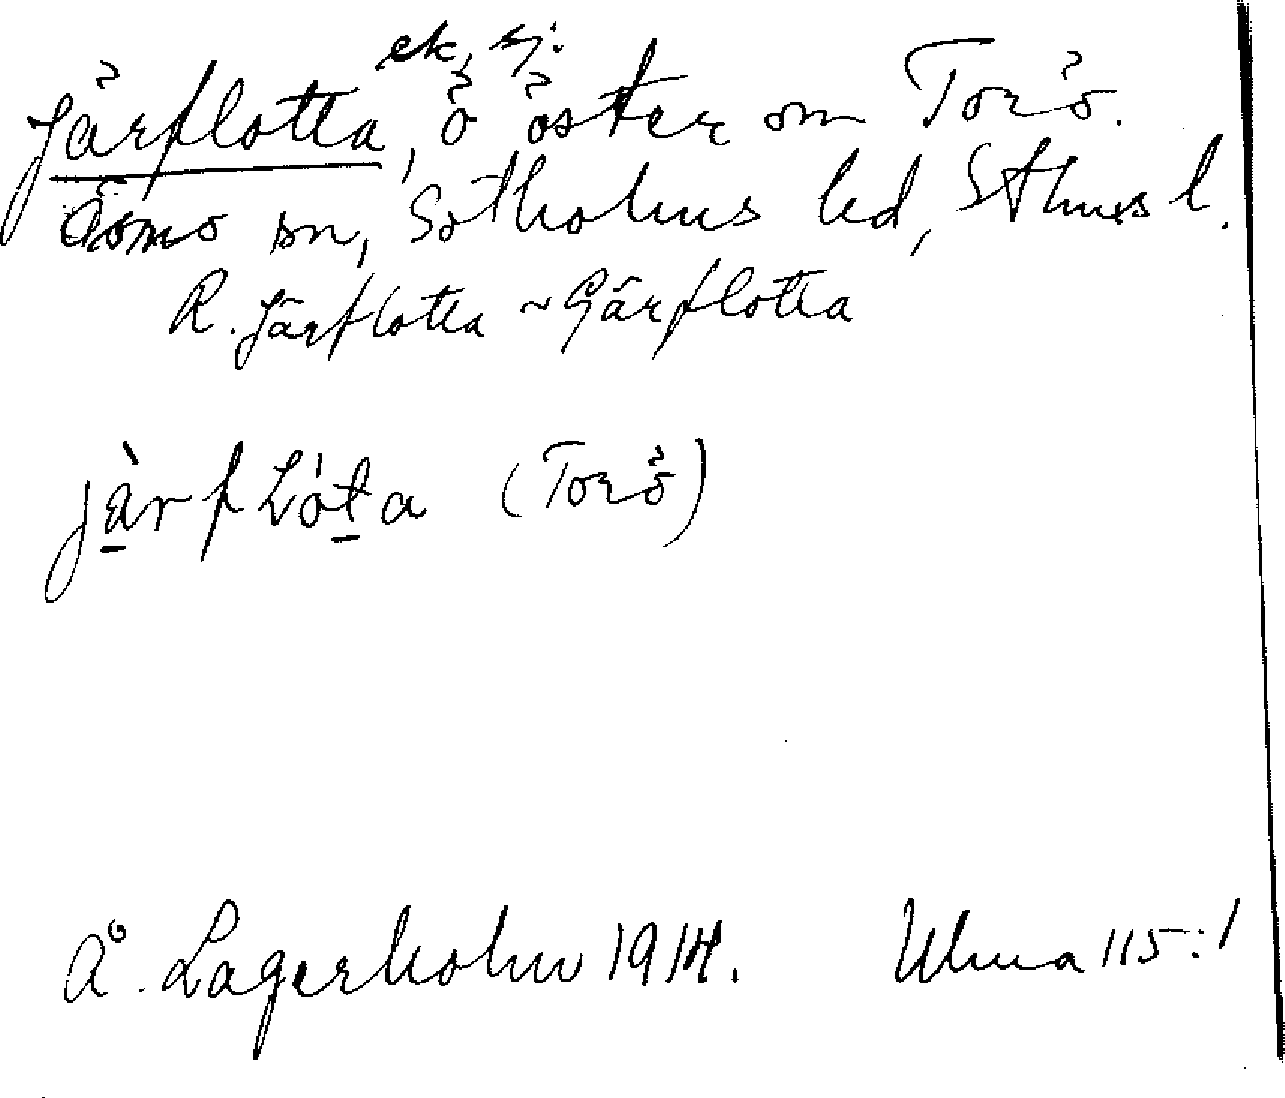 ek, sj.
Järflotta, ö öster om Torö.
Ösmo sn, Sotholms hd, Sthms l.
R. Järflotta ~ Gärflotta
jàrfLóta (Torö)
Å. Lagerholm 1914. Ulma 115:1